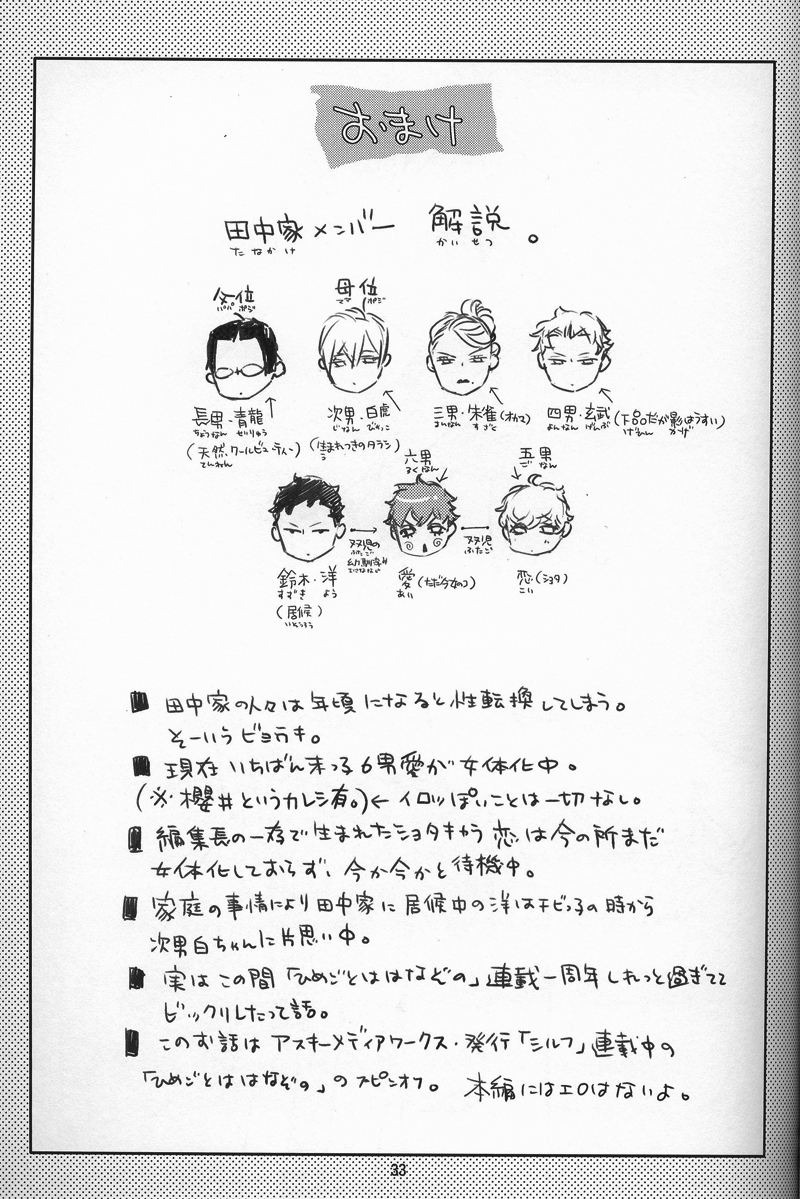 おまけ
田中家メンバー 解説。
たなかけ かいせつ
父位 母位
パパポジ ママポジ
長男・青龍
ちょうなん せいりゅう
(天然、クールビューティー)
てんねん
次男・白虎
じなん びゃっこ
(生まれつきのタラシ)
三男・朱雀(オカマ)
さんなん すざく
四男・玄武(下品だが影はうすい)
よんなん げんぶ げひん かげ
六男
ろくなん
五男
ごなん
鈴木・洋
すずき よう
(居候)
いそうろう
双児の
ふたご
幼馴染み
おさななじみ
愛(ただ今女のコ)
あい
双児
ふたご
恋(ショタ)
こい
■ 田中家の人々は年頃になると性転換してしまう。
そーいうビョウキ。
■ 現在いちばん末っ子6男愛が女体化中。
(※櫻井というカレシ有。)← イロッぽいことは一切なし。
■ 編集長の一存で生まれたショタキャラ恋は今の所まだ
女体化しておらず、今か今かと待機中。
■ 家庭の事情により田中家に居候中の洋はチビっ子の時から
次男白ちゃんに片思い中。
■ 実はこの間「ひめごとははなぞの」連載一周年しれっと過ぎてて
ビックリしたって話。
■ このお話はアスキーメディアワークス・発行「シルフ」連載中の
「ひめごとははなぞの」のスピンオフ。 本編にはエロはないよ。
33